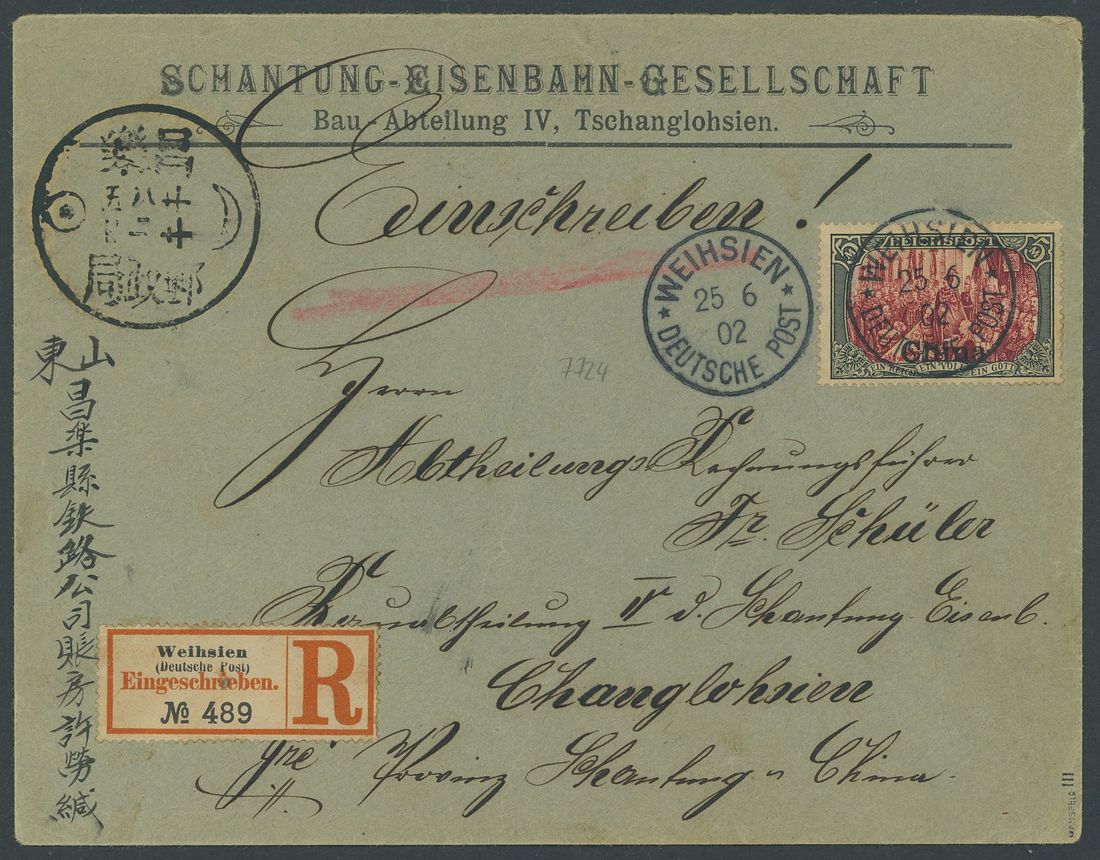 SCHANTUNG-EISENBAHN-GESELLSCHAFT
Bau-Abteilung IV, Tschanglohsien.
Einschreiben!
郵政局
WEIHSIEN
25 6
02
DEUTSCHE POST
REICHSPOST
5 M 5 M
China
EIN REICH EIN VOLK EIN GOTT
WEIHSIEN
25 6
02
DEUTSCHE POST
7724
Herrn
Abtheilungs Rechnungsführer
Fr. Schüler
Bauabtheilung IV d. Schantung Eisenb.
Changlohsien
Provinz Schantung China.
山東
昌樂縣鉄路公司賬房許勞緘
Weihsien
(Deutsche Post)
Eingeschrieben.
№ 489
R
MANSFELD III